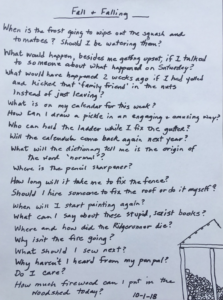 Fall & Falling
When is the frost going to wipe out the squash and
tomatoes? Should I be watering them?
What would happen, besides me getting upset, if I talked
to someone about what happened on Saturday?
What would have happened 2 weeks ago if I had yelled
and kicked that 'family friend' in the nuts
instead of just leaving?
What is on my calendar for this week?
How can I draw a pickle in an engaging & amusing way?
Who can hold the ladder while I fix the gutter?
Will the calendula come back again next year?
What will the dictionary tell me is the origin of
the word 'normal'?
Where is the pencil sharpener?
How long will it take me to fix the fence?
Should I hire someone to fix the roof or do it myself?
When will I start painting again?
What can I say about these stupid, sexist books?
Where and how did the Ridgerunner die?
Why isn't the fire going?
What should I sew next?
Why haven't I heard from my penpal?
Do I care?
How much firewood can I put in the
woodshed today?
10-1-18